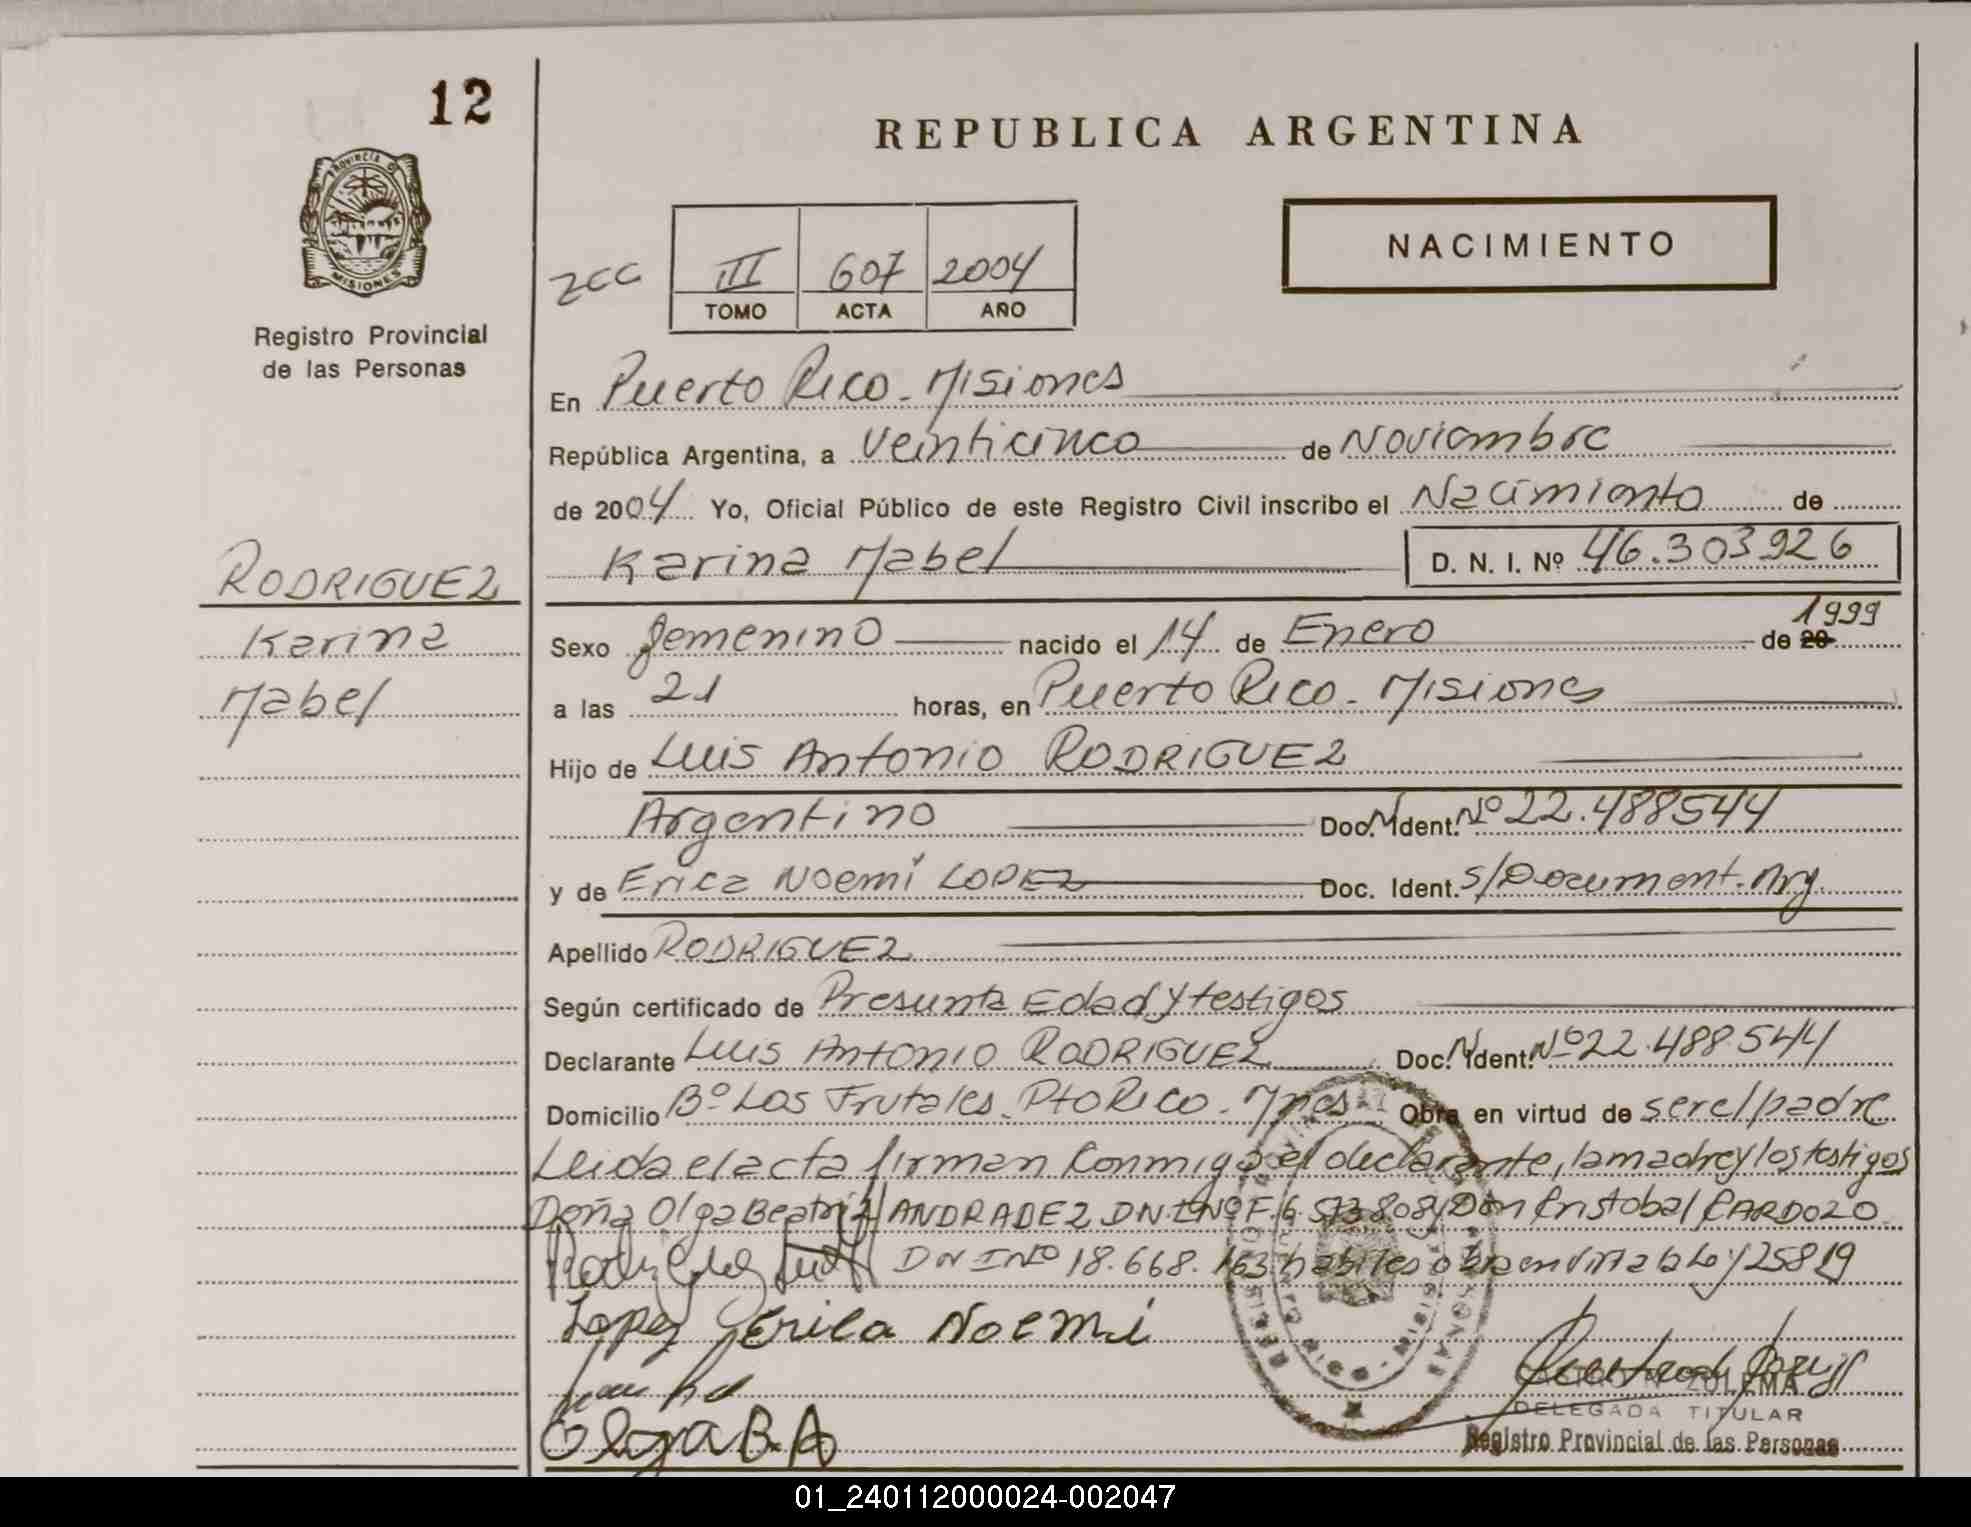 12
REPUBLICA ARGENTINA
PROVINCIA DE
MISIONES
NACIMIENTO
Registro Provincial
de las Personas
zcc III 607 2004
TOMO ACTA AÑO
En Puerto Rico - Misiones
República Argentina, a Veinticinco de Noviembre
de 2004 Yo, Oficial Público de este Registro Civil inscribo el Nacimiento de
Karina Mabel D. N. I. Nº 46.303926
RODRIGUEZ
Karina
Mabel
Sexo femenino nacido el 14 de Enero de 20 1999
a las 21 horas, en Puerto Rico - Misiones
Hijo de Luis Antonio RODRIGUEZ
Argentino Doc. Ident. Nº 22.488544
y de Erica Noemí LOPEZ Doc. Ident. S/Document. Arg.
Apellido RODRIGUEZ
Según certificado de Presunta Edad y testigos
Declarante Luis Antonio RODRIGUEZ Doc. Ident. Nº 22.488.544
Domicilio Bº Los Frutales. Pto Rico - Mnes Obra en virtud de ser el padre
Leida el acta firman conmigo el declarante, la madre y los testigos
Doña Olga Beatriz ANDRADEZ DNI Nº F.6.573.808 y Don Cristobal CARDOZO
DNI Nº 18.668.163 habiles obra en virtud Ley 25819
Lopez Erica Noemi
Olga B. A
ZULEMA
DELEGADA TITULAR
Registro Provincial de las Personas
01_240112000024-002047